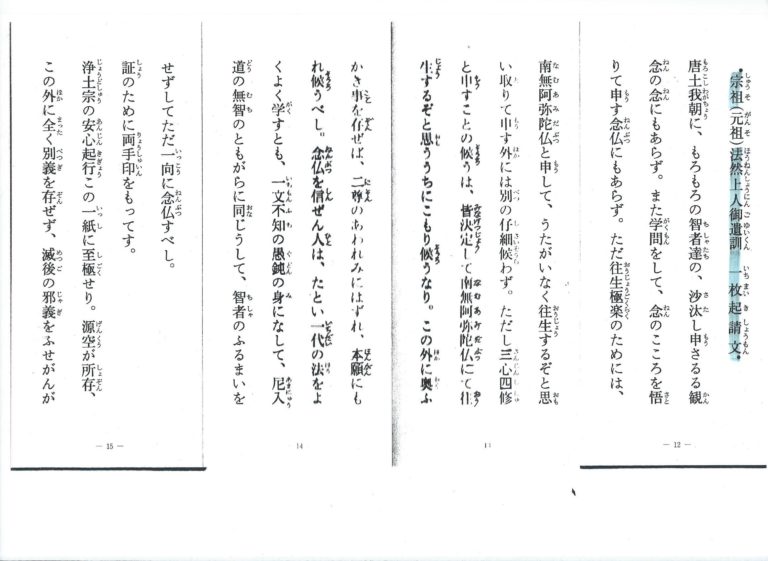 宗祖（元祖）法然上人御遺訓　一枚起請文
唐土我朝に、もろもろの智者達の、沙汰し申さるる観
念の念にもあらず。また学問をして、念のこころを悟
りて申す念仏にもあらず。ただ往生極楽のためには、
— 12 —
南無阿弥陀仏と申して、うたがいなく往生するぞと思
い取りて申す外には別の仔細候わず。ただし三心四修
と申すことの候うは、皆決定して南無阿弥陀仏にて往
生するぞと思ううちにこもり候うなり。この外に奥ふ
13
かき事を存ぜば、二尊のあわれみにはずれ、本願にも
れ候うべし。念仏を信ぜん人は、たとい一代の法をよ
くよく学すとも、一文不知の愚鈍の身になして、尼入
道の無智のともがらに同じうして、智者のふるまいを
14
せずしてただ一向に念仏すべし。
証のために両手印をもってす。
浄土宗の安心起行この一紙に至極せり。源空が所存、
この外に全く別義を存ぜず、滅後の邪義をふせがんが
— 15 —